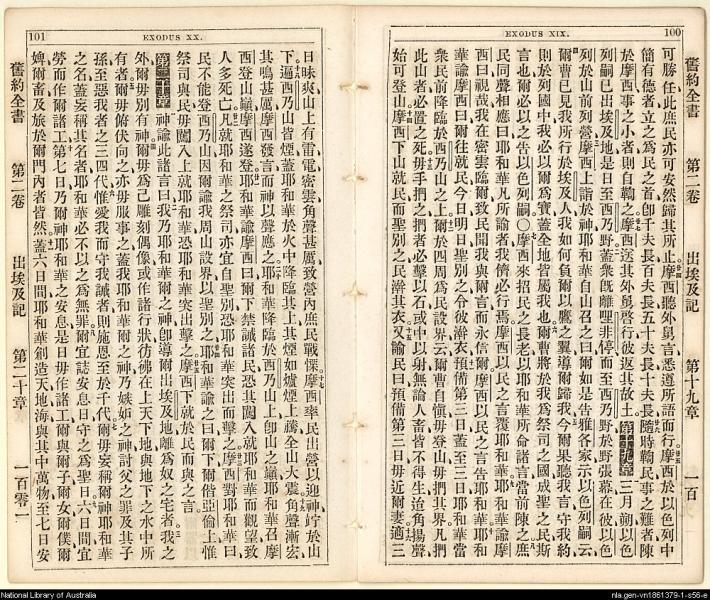 EXODUS XIX.
100
舊約全書 第二卷 出埃及記 第十九章 一百
可勝任此庶民亦可安然歸其所摩西聽外舅言悉遵所語而行摩西於以色列中
簡有德者立之為民之首卽千夫長百夫長五十夫長十夫長隨時鞫民事之難者陳
於摩西事之小者則自鞫之摩西送其外舅啓行彼返其故土第十九章三月朔以色
列嗣已出埃及地是日至西乃野蓋衆旣離哩非停而至西乃野於野張幕在彼以色
列於山前列營摩西上詣於神耶和華自山召之曰爾如是告雅各家示以色列嗣云
爾曹已見我所行於埃及人我如何負爾以鷹之翼導爾歸我今爾果聽我言守我約
則於列國中我必以爾為寶蓋全地皆屬我也爾曹將於我為祭司之國成聖之民斯
言也爾必以之告以色列嗣〇摩西來招民之長老以耶和華所命諸言當前陳之庶
民同聲相應曰耶和華凡所諭者我儕必行焉摩西以民之言覆耶和華耶和華諭摩
西曰視哉我在密雲臨爾致民聞我與爾言而永信爾摩西以民之言告耶和華耶和
華諭摩西曰爾往就民今日明日聖別之令彼澣衣預備第三日蓋至三日耶和華當
衆民前降臨於西乃山之上爾於四周為民設界云爾曹自愼毋登山毋捫其界凡捫
此山者必置之死毋手捫之捫者必擊以石或中以射無論人畜皆不得生迨角揚聲
始可登山摩西下山就民而聖別之民澣其衣又諭民曰預備第三日毋近爾妻適三
EXODUS XX.
101
日昧爽山上有雷電密雲角聲甚厲致營內庶民戰慄摩西率民出營以迎神竚於山
下遍西乃山皆煙蓋耶和華於火中降臨其上其煙如爐煙上騰全山大震角聲漸宏
其鳴甚厲摩西發言而神以聲應之耶和華降臨於西乃山上卽山之巓耶和華召摩
西登山巓摩西遂登耶和華諭摩西曰爾下禁誡諸民恐其闖入就耶和華而觀望致
人多死亡凡就耶和華之祭司亦宜自聖別恐耶和華突出而擊之摩西對耶和華曰
民不能登西乃山因爾諭我周山設界以聖別之耶和華諭之曰爾下爾偕亞倫上惟
祭司與民毋闖入上就耶和華恐耶和華突出擊之摩西下就於民而與之言
第二十章 神諭此諸言曰我乃耶和華爾之神卽導爾出埃及地離為奴之宅者我之
外爾毋別有神爾毋為己雕刻偶像或作諸行狀彷彿在上天下地與地下之水中所
有者爾毋俯伏向之亦毋服事之蓋我耶和華爾之神乃嫉妒之神討父之罪及其子
孫至惡我者之三四代惟愛我而守我誡者則施恩至於千代爾毋妄稱爾神耶和華
之名蓋妄稱其名者耶和華必不以之為無罪爾宜誌安息日守之為聖日六日間宜
勞而作爾諸工第七日乃爾神耶和華之安息是日毋作諸工爾與爾子爾女爾僕爾
婢爾畜及旅於爾門內者皆然蓋六日間耶和華創造天地海與其中萬物至七日安
舊約全書 第二卷 出埃及記 第二十章 一百零一
National Library of Australia
nla.gen-vn1861379-1-s56-e